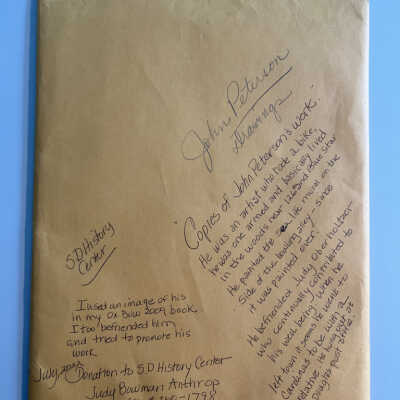 John Peterson
Drawings
"Copies of John Peterson's work."
He was an artist who rode a bike.
he was one armed and basically lived
in the woods near 126 and Blue Star
He painted the sea life mural on the
side of the bowling alley - since
it was painted over.
He befriended Judy Oberholtzer
who continually contributed to
his well being. When he
left town it seems he went to
Cardinas to be with a
relative. He was
Douglas post office.
S.D History
Center
I used an image of his
in my Ox Bow 2009 book.
I too befriended him
and tried to promote his
work
July, Donation to S.D History Center
Judy Bowman Anthrop
1798